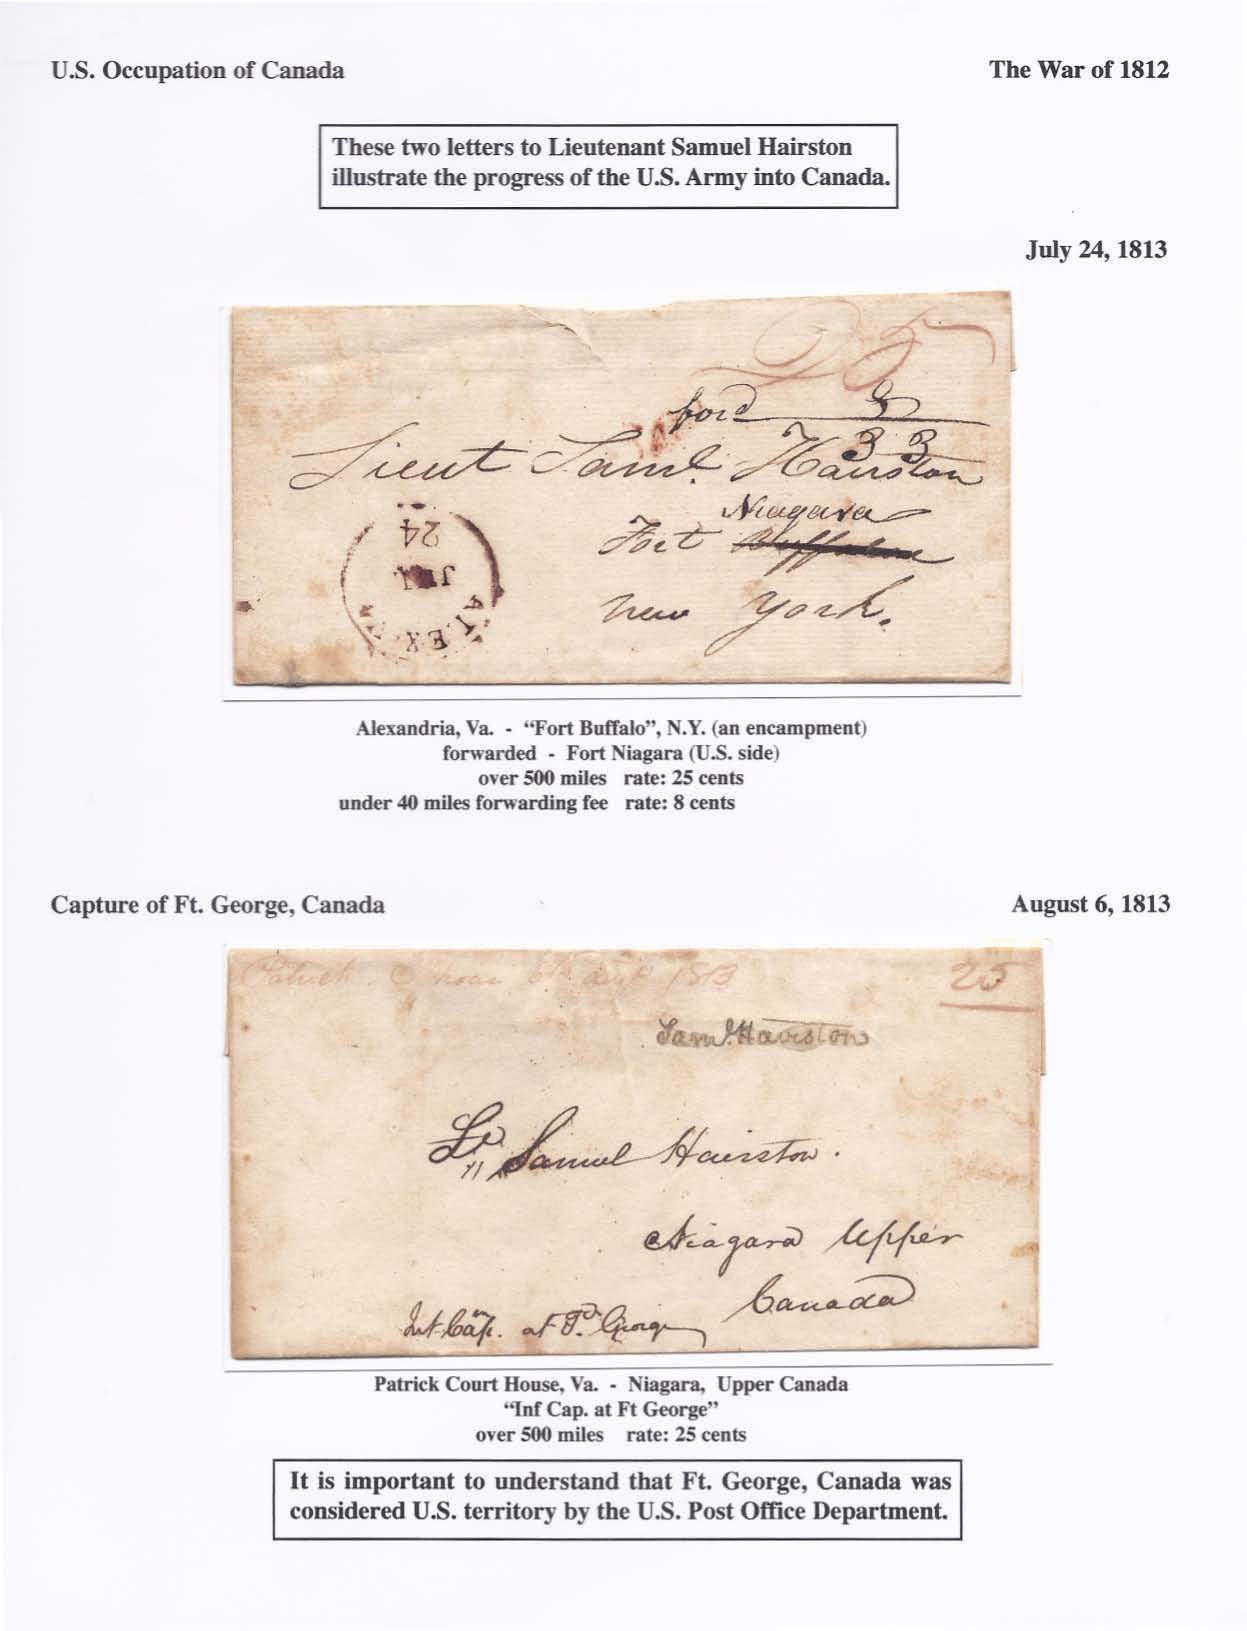 U.S. Occupation of Canada
The War of 1812
These two letters to Lieutenant Samuel Hairston
illustrate the progress of the U.S. Army into Canada.
July 24, 1813
25
ford 8
33
Lieut Saml. Hairston
Niagara
Fort Buffaloe
New York.
24
JUL
ALEX
Alexandria, Va. - “Fort Buffalo”, N.Y. (an encampment)
forwarded - Fort Niagara (U.S. side)
over 500 miles rate: 25 cents
under 40 miles forwarding fee rate: 8 cents
Capture of Ft. George, Canada
August 6, 1813
Patrick 6th 1813
25
Saml. Hairston
Lt. Samuel Hairston.
Niagara Upper
Canada
Inf Cap. at Ft. George
Patrick Court House, Va. - Niagara, Upper Canada
“Inf Cap. at Ft George”
over 500 miles rate: 25 cents
It is important to understand that Ft. George, Canada was
considered U.S. territory by the U.S. Post Office Department.